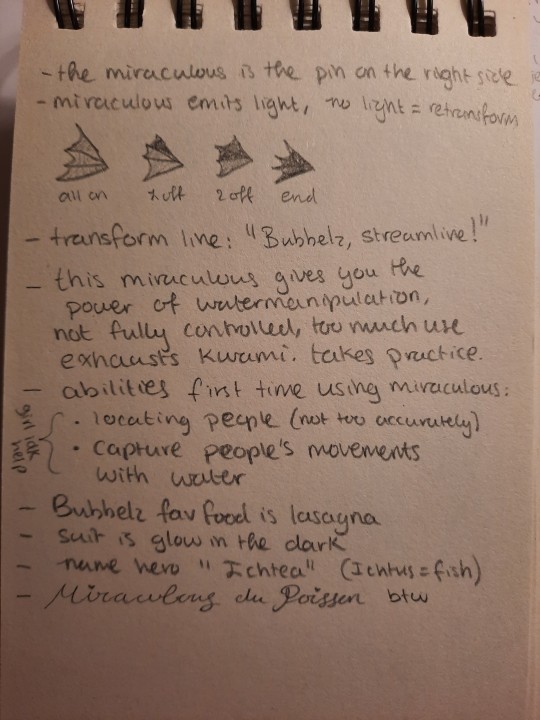 - the miraculous is the pin on the right side
- miraculous emits light, no light = retransform
all on 1 off 2 off end
- transform line: "Bubbelz, streamline!"
- this miraculous gives you the
power of watermanipulation,
not fully controlled, too much use
exhausts Kwami. takes practice.
- abilities first time using miraculous:
• locating people (not too accurately)
• capture people's movements
with water
girl idk
help
- Bubbelz fav food is lasagna
- suit is glow in the dark
- name hero "Ichtea" (Ichtus = fish)
- Miraculous du Poisson btw